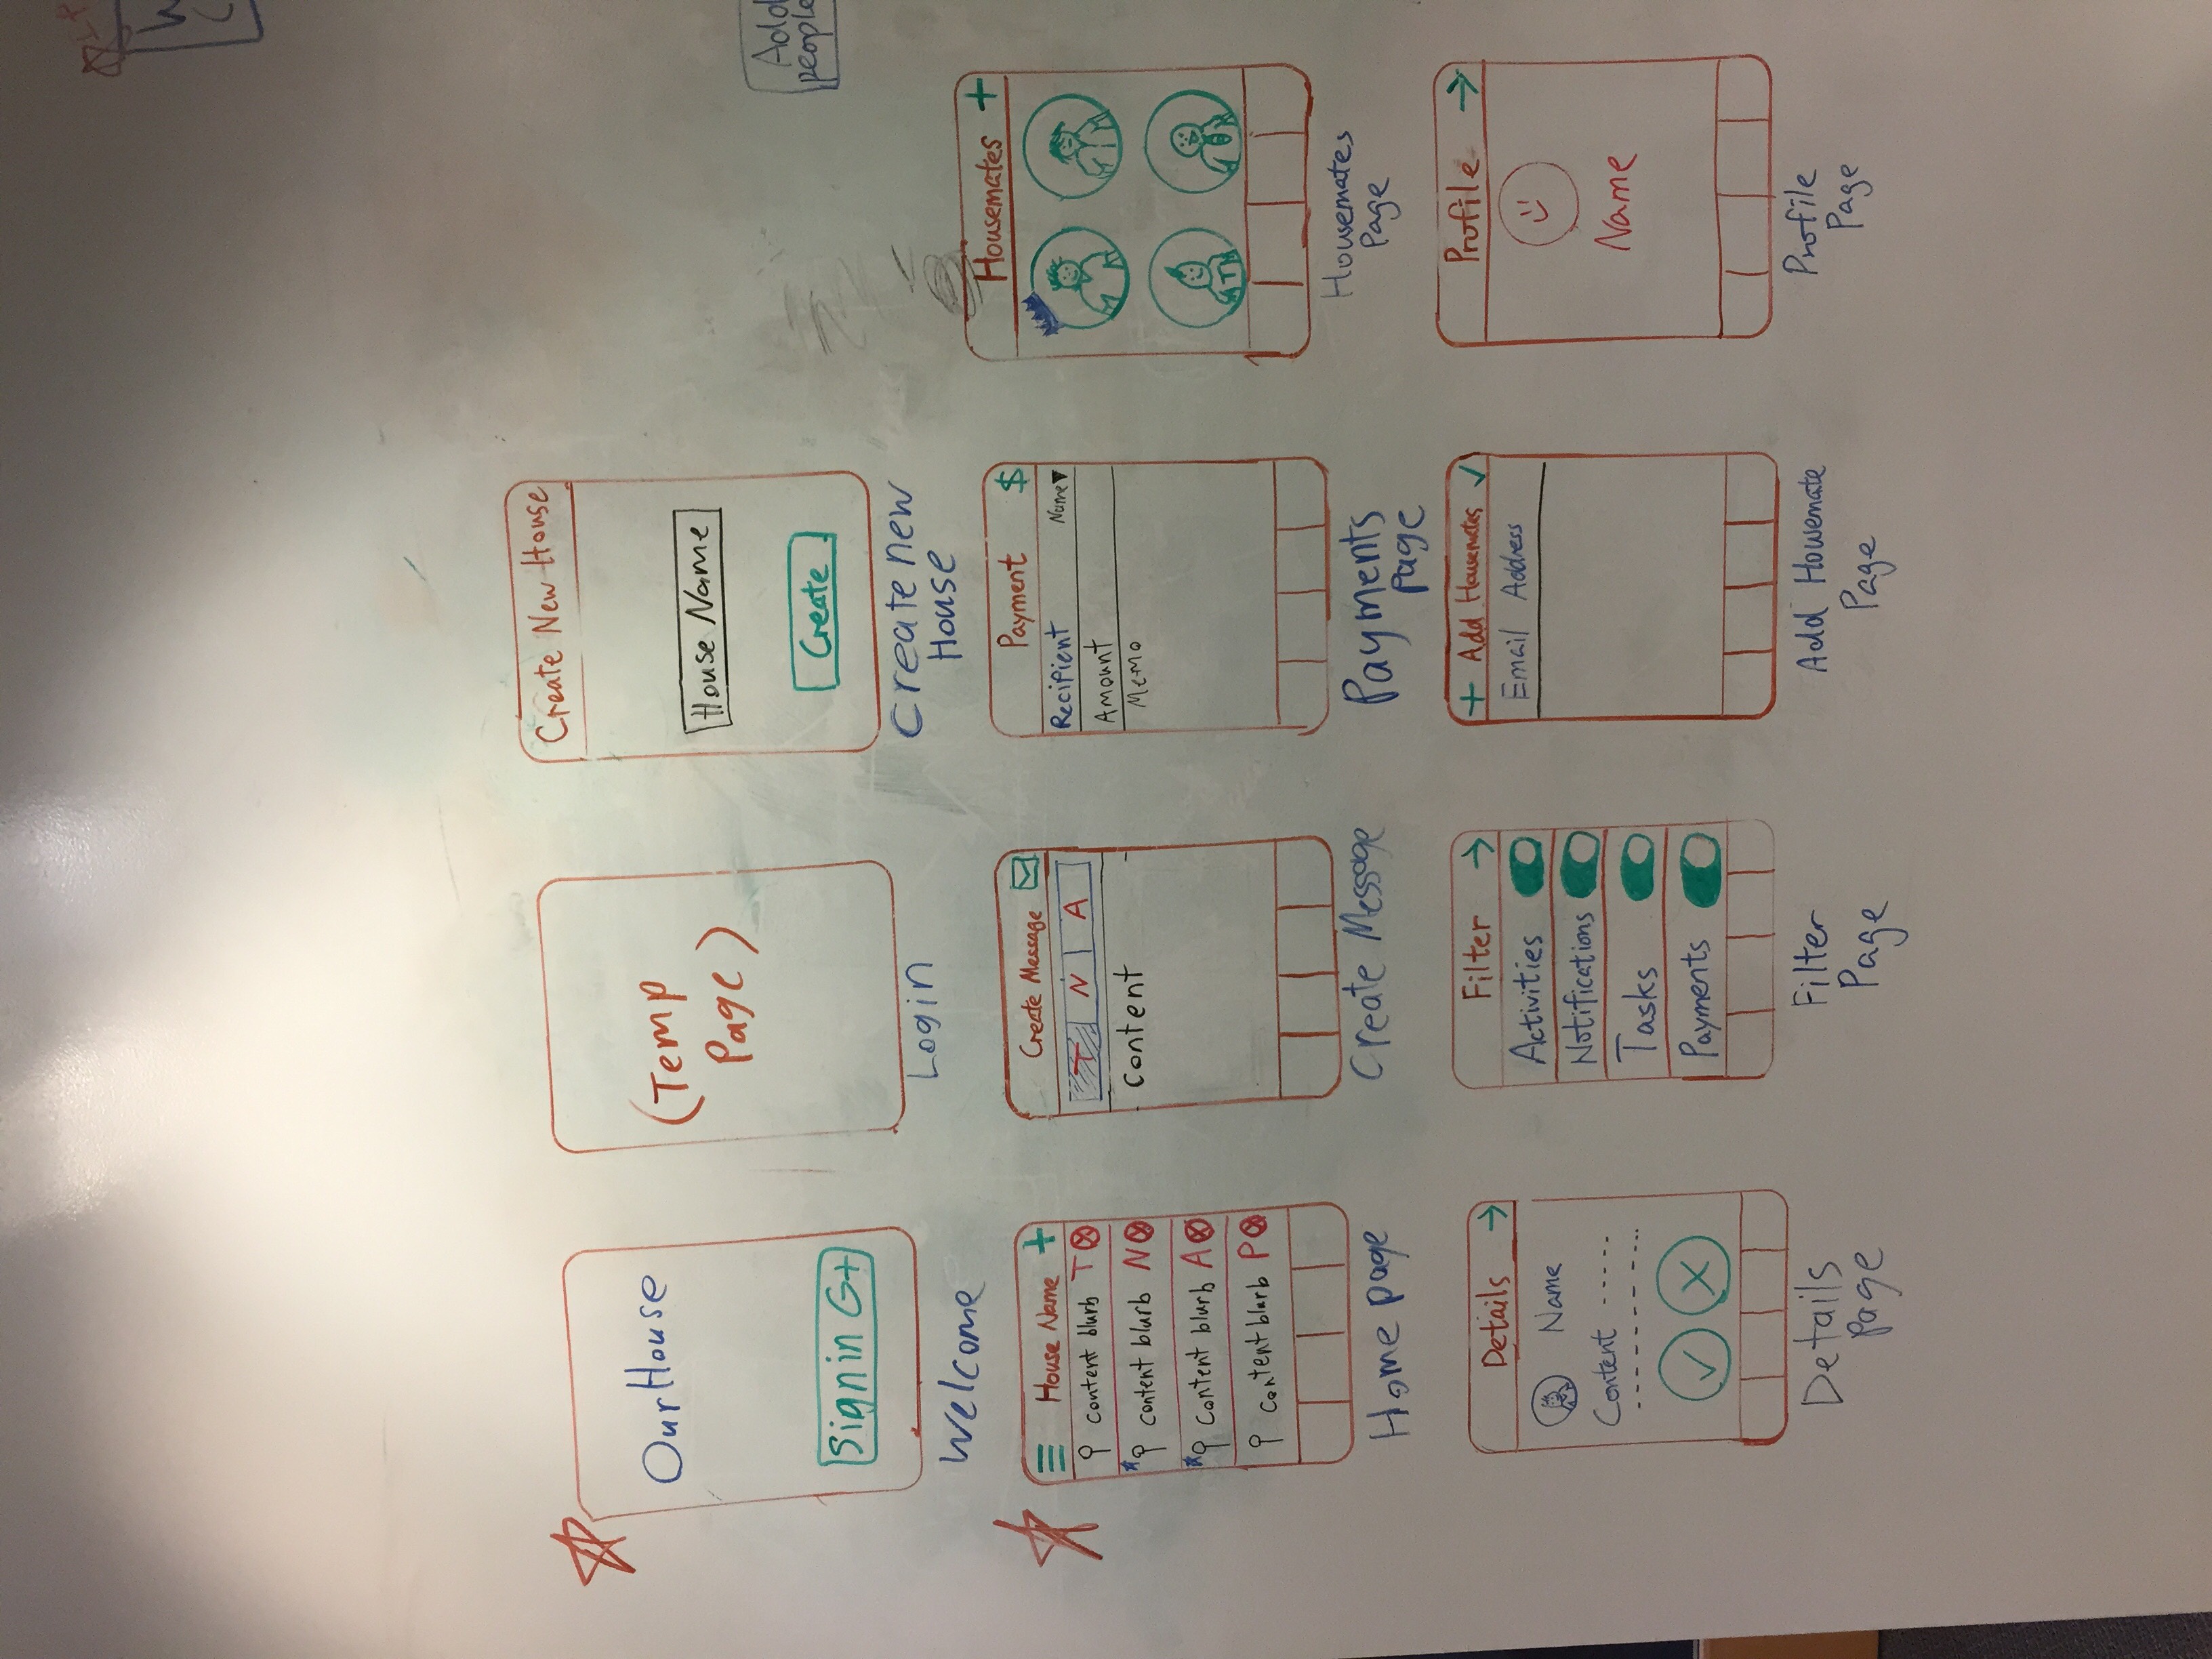 OurHouse
Sign in G+
Welcome
(Temp
Page)
Login
Create New House
House Name
Create
Create new
House
Add
people
House Name +
content blurb T
content blurb N
content blurb A
content blurb P
Home page
Create Message
T N A
Content
Create Message
Payment $
Recipient Name▼
Amount
Memo
Payments
Page
Housemates +
T
Housemates
Page
Details →
Name
Content
Details
Page
Filter →
Activities
Notifications
Tasks
Payments
Filter
Page
+ Add Housemates ✓
Email Address
Add Housemate
Page
Profile →
Name
Profile
Page